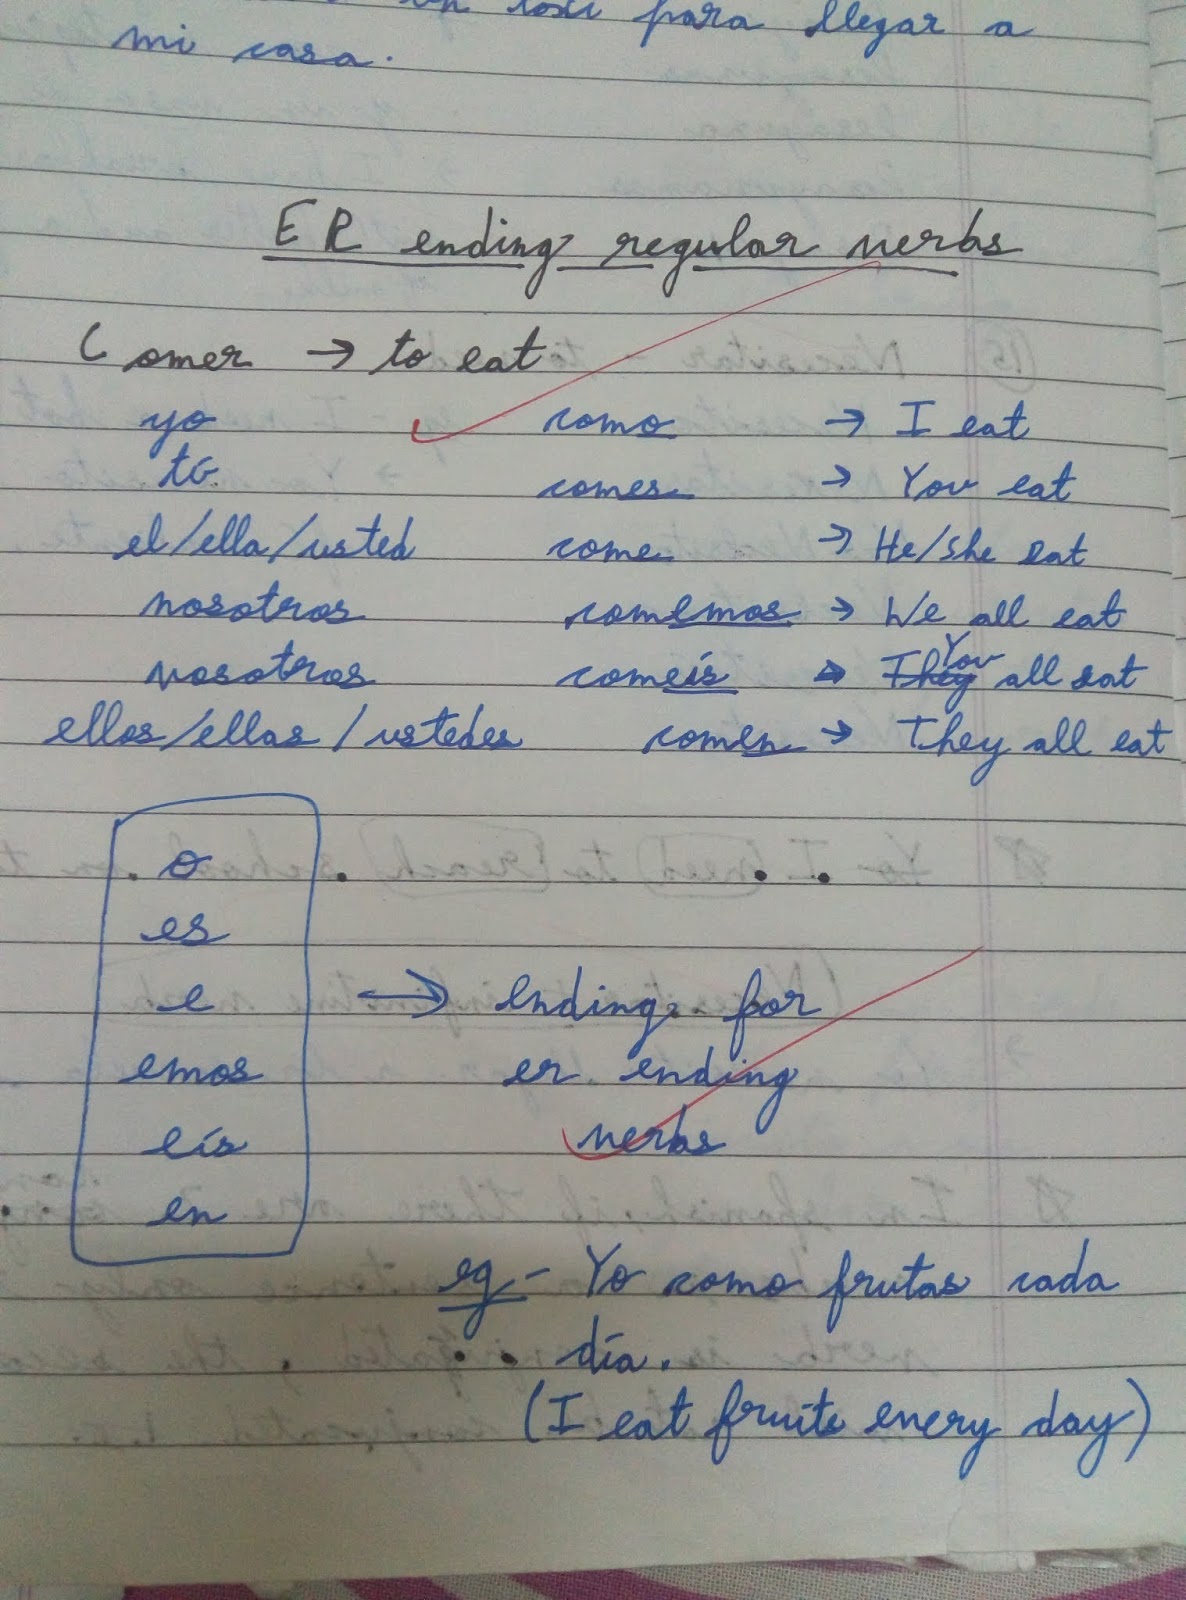 un taxi para llegar a
mi casa.
ER ending regular verbs
Comer → to eat
yo como → I eat
tú comes → You eat
el/ella/usted come → He/she eat
nosotros comemos → We all eat
vosotros comeís → You all eat
ellos/ellas/ustedes comen → They all eat
o
es
e → ending for
emos er ending
eís verbs
en
eg - Yo como frutas cada
día.
(I eat fruits every day)